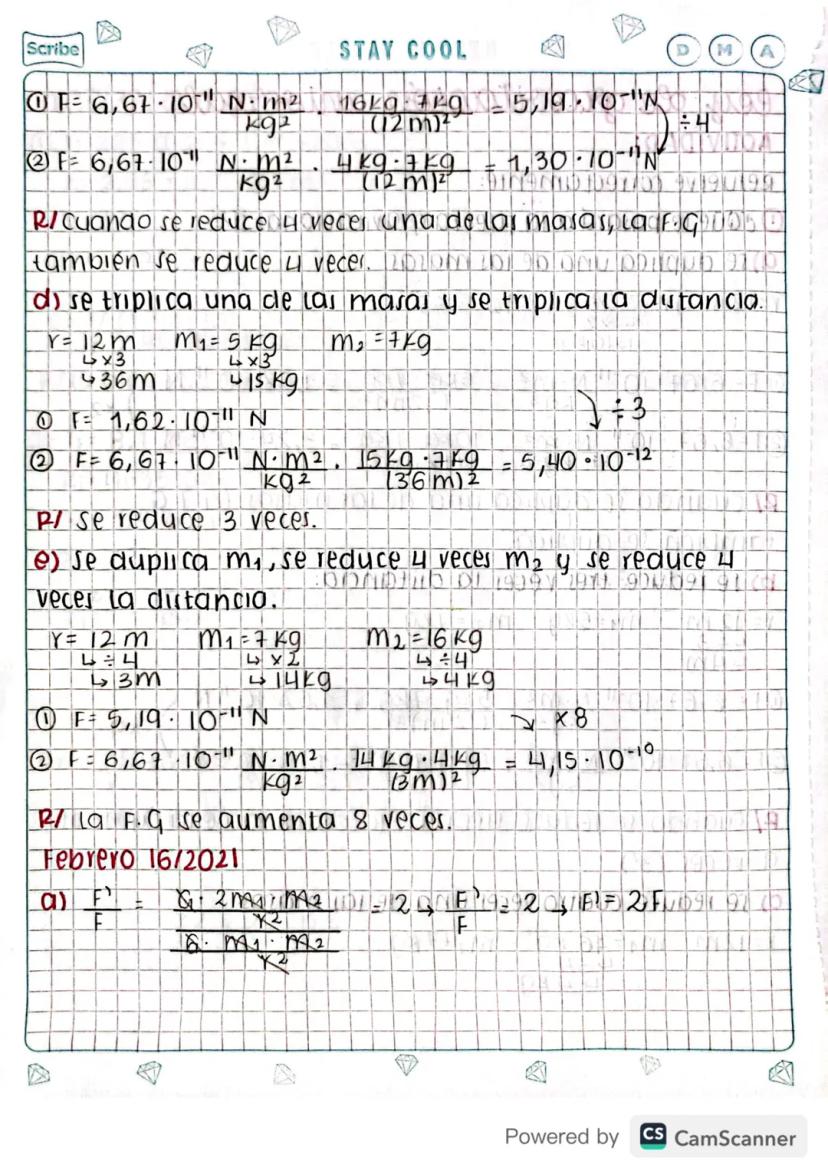 Scribe STAY COOL D M A
① F= 6,67·10⁻¹¹ N·m²/kg² · 16kg·7kg/(12m)² = 5,19·10⁻¹¹N
÷4
② F= 6,67·10⁻¹¹ N·m²/kg² · 4kg·7kg/(12m)² = 1,30·10⁻¹¹N
R/ Cuando se reduce 4 veces una de las masas, la F.G
también se reduce 4 veces.
d) se triplica una de las masas y se triplica la distancia.
r= 12m m₁= 5 kg m₂ = 7kg
↳ x3 ↳ x3
↳ 36m ↳ 15kg
① F= 1,62·10⁻¹¹ N ↓ ÷3
② F= 6,67·10⁻¹¹ N·m²/kg² · 15kg·7kg/(36m)² = 5,40·10⁻¹²
R/ se reduce 3 veces.
e) se duplica m₁, se reduce 4 veces m₂ y se reduce 4
veces la distancia.
r= 12m m₁= 7kg m₂=16kg
↳ ÷4 ↳ x2 ↳ ÷4
↳ 3m ↳ 14kg ↳ 4kg
① F= 5,19·10⁻¹¹N ↘ x8
② F= 6,67·10⁻¹¹ N·m²/kg² · 14kg·4kg/(3m)² = 4,15·10⁻¹⁰
R/ la F.G se aumenta 8 veces.
Febrero 16/2021
a) F'/F = (G·2m₁·m₂/r²)/(G·m₁·m₂/r²) = 2 → F'/F = 2 → F' = 2F
Powered by CS CamScanner